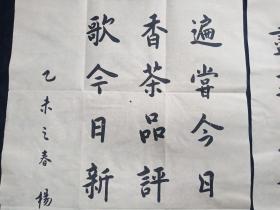 遍嘗今日
香茶品評
歌今日新
乙未之春 楊